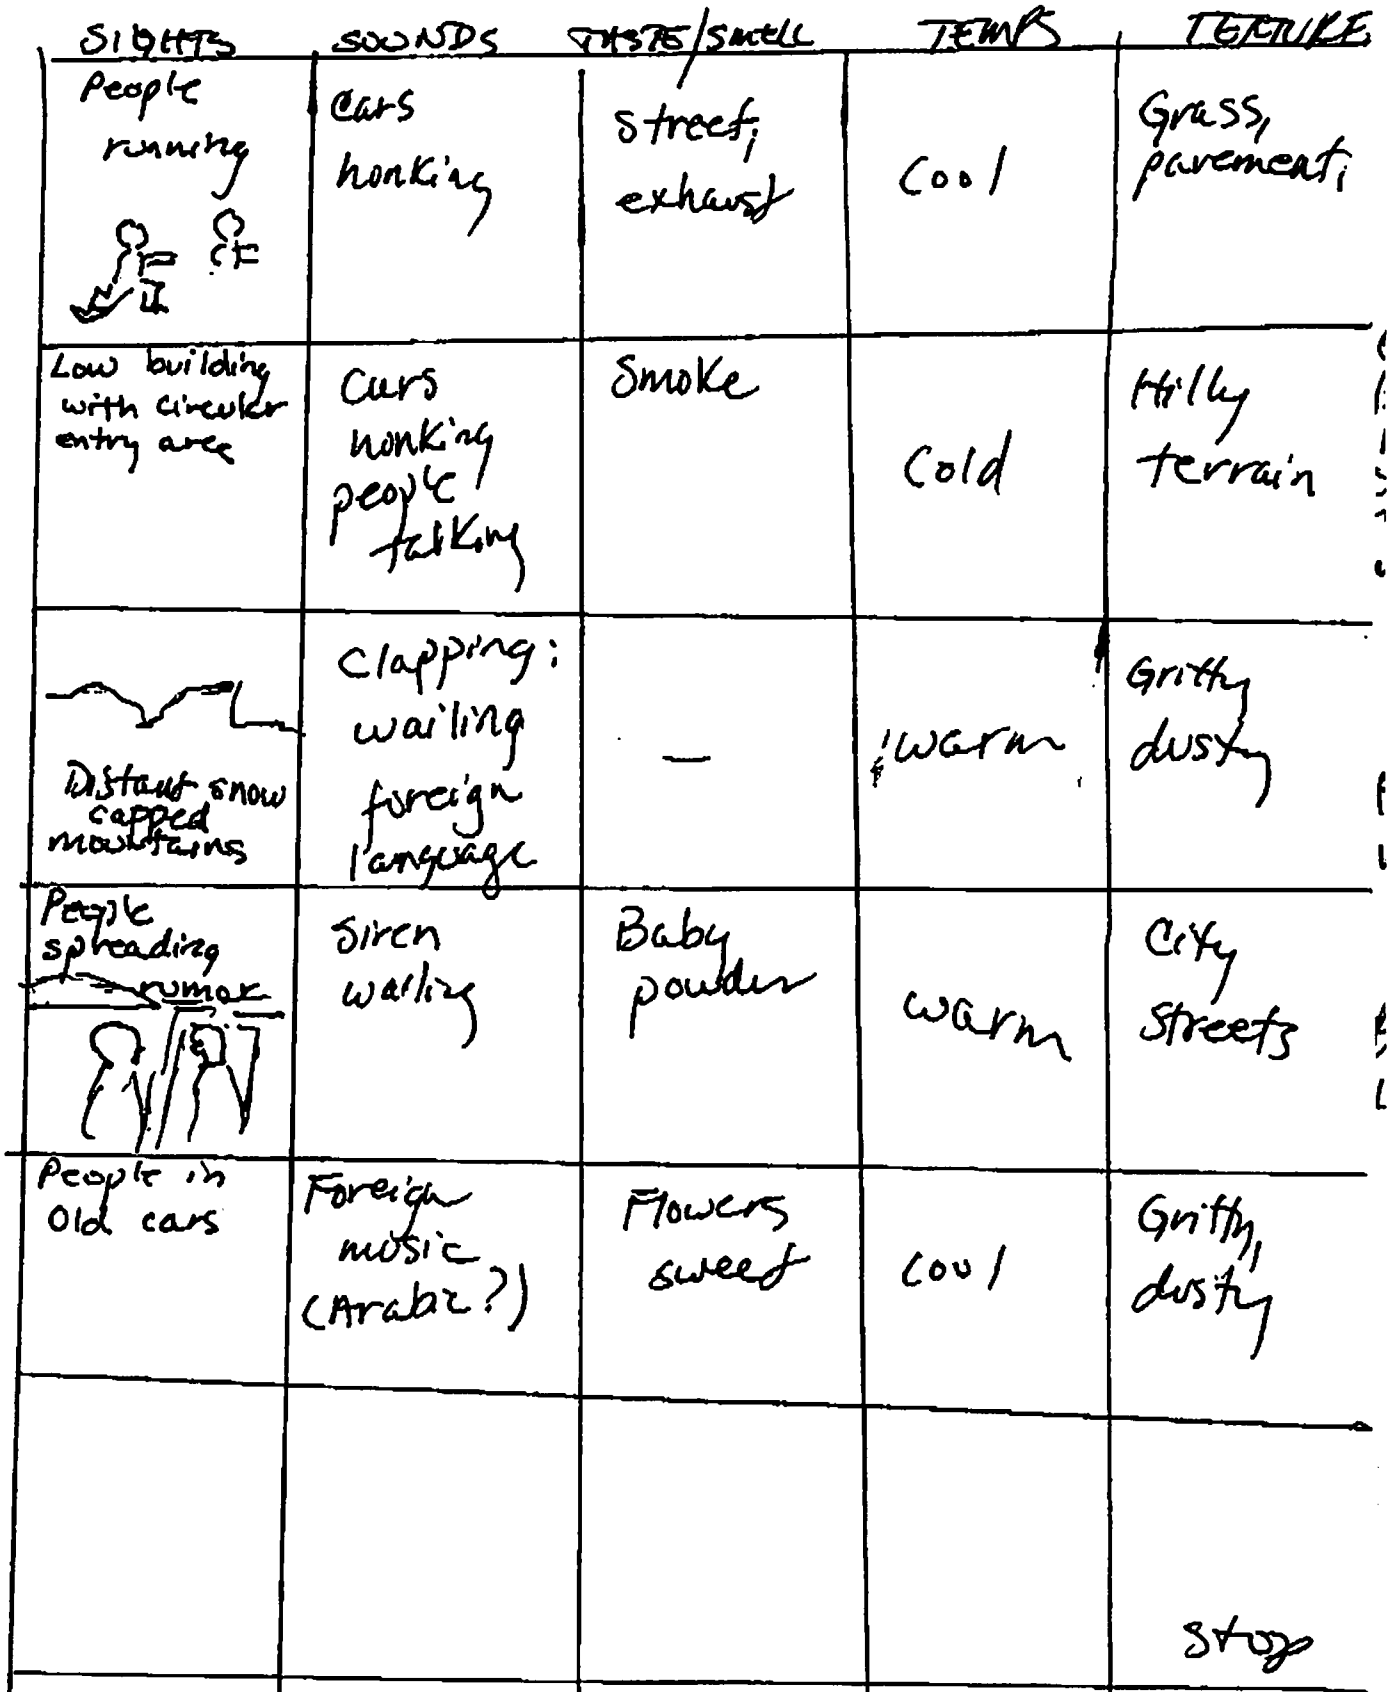 SIGHTS SOUNDS TASTE/SMELL TEMPS TEXTURE
People
running
Cars
honking
street,
exhaust
Cool
Grass,
pavement,
Low building
with circular
entry area
Cars
honking
people
talking
Smoke
Cold
Hilly
terrain
Distant snow
capped
mountains
Clapping;
wailing
foreign
language
—
warm
Gritty
dusty
People
spreading
rumor
Siren
wailing
Baby
powder
warm
City
streets
People in
Old cars
Foreign
music
(Arabic?)
Flowers
sweet
cool
Gritty,
dusty
stop